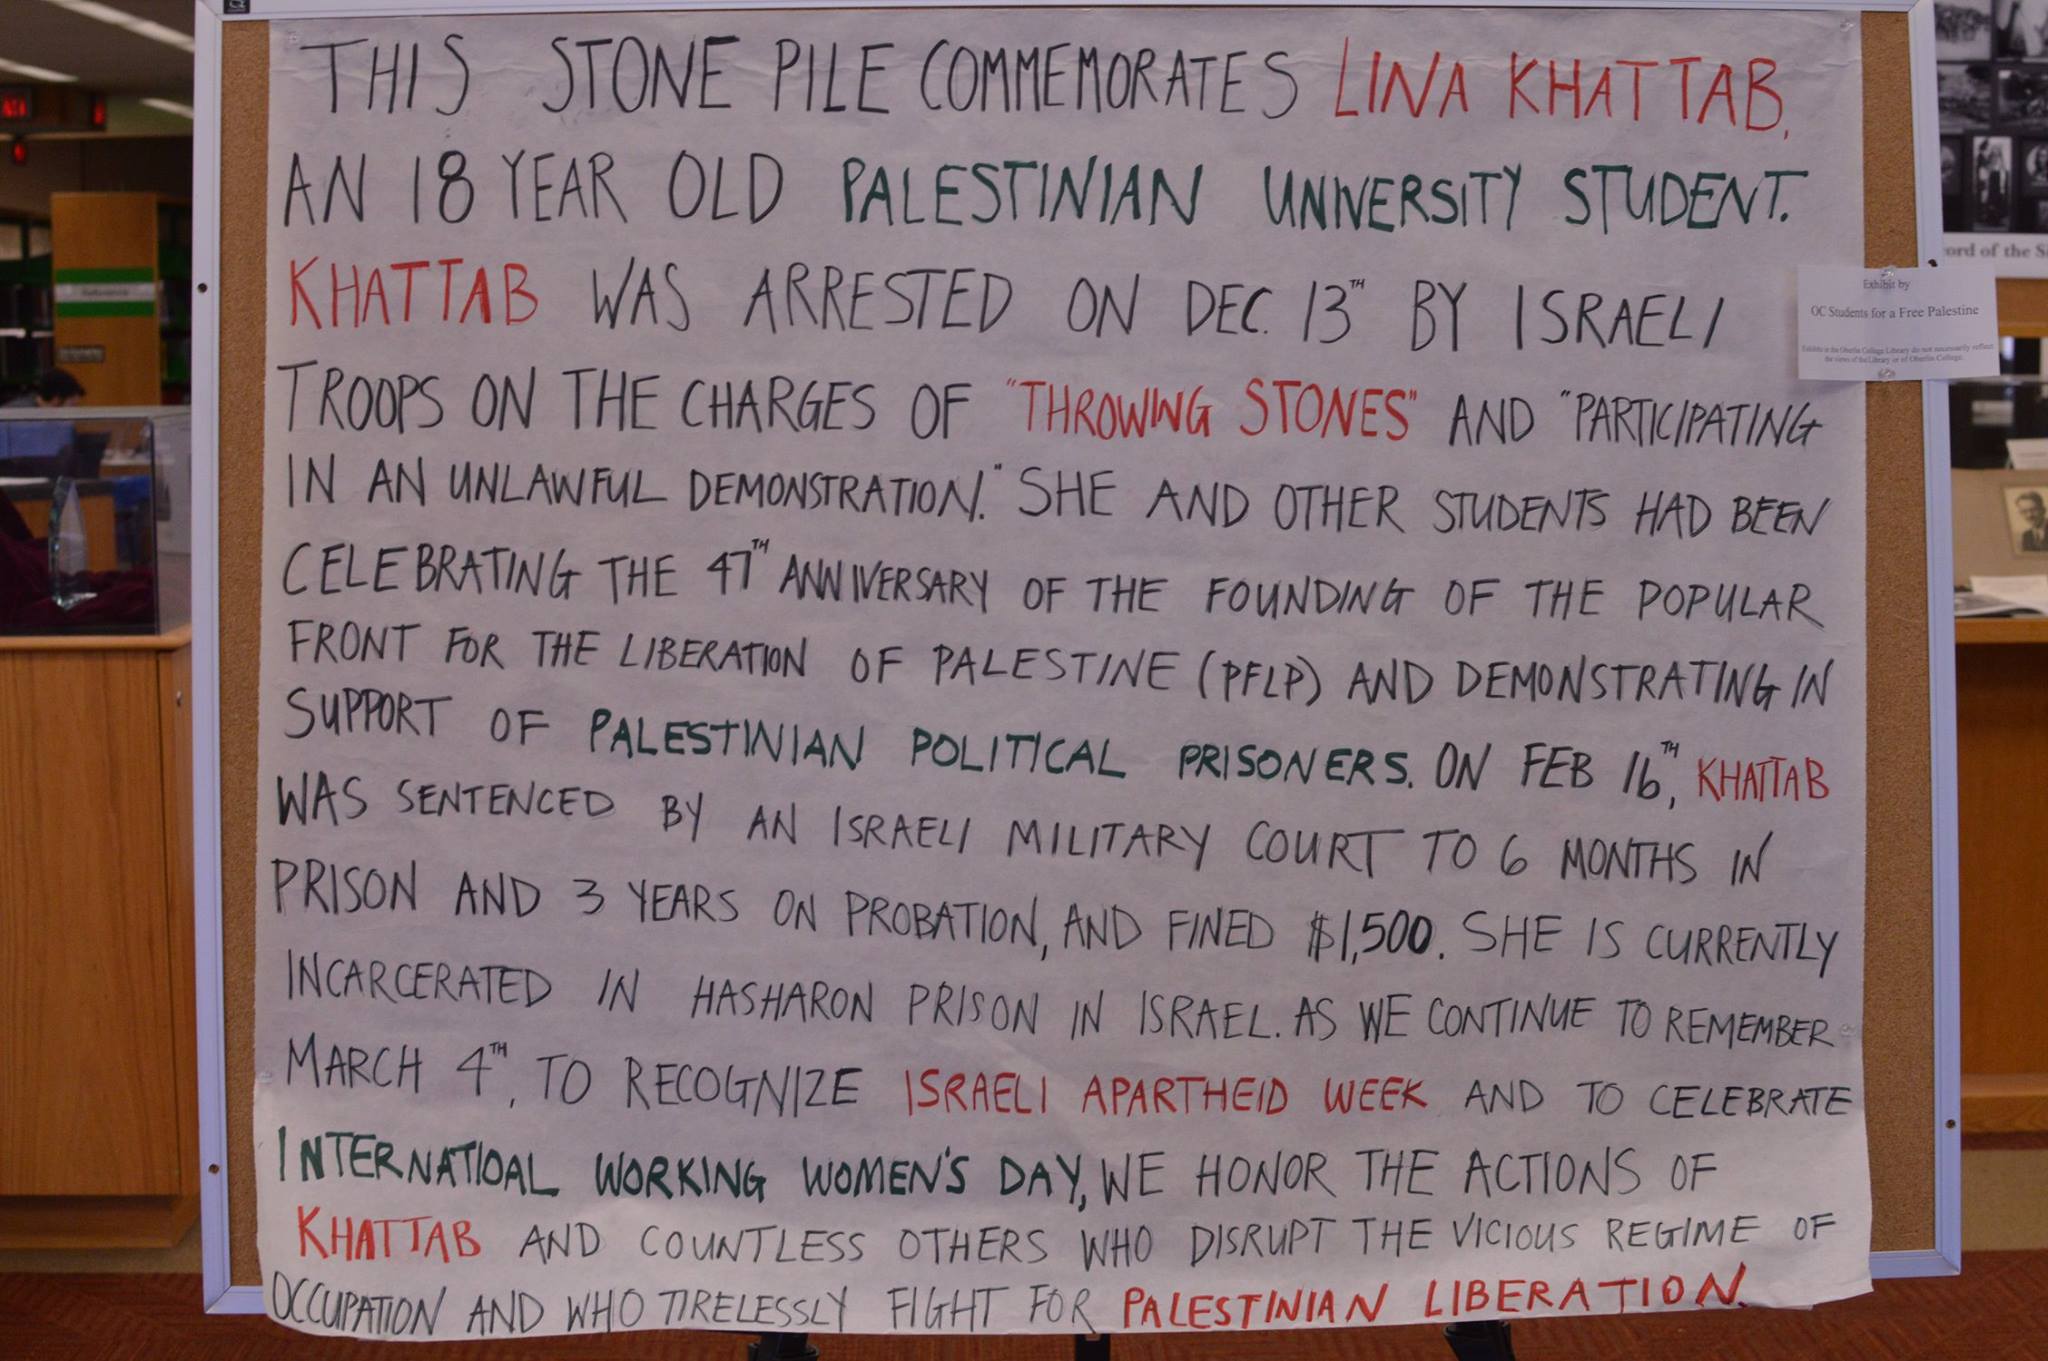 THIS STONE PILE COMMEMORATES LINA KHATTAB,
AN 18 YEAR OLD PALESTINIAN UNIVERSITY STUDENT.
KHATTAB WAS ARRESTED ON DEC. 13TH BY ISRAELI
TROOPS ON THE CHARGES OF "THROWING STONES" AND "PARTICIPATING
IN AN UNLAWFUL DEMONSTRATION." SHE AND OTHER STUDENTS HAD BEEN
CELEBRATING THE 47TH ANNIVERSARY OF THE FOUNDING OF THE POPULAR
FRONT FOR THE LIBERATION OF PALESTINE (PFLP) AND DEMONSTRATING IN
SUPPORT OF PALESTINIAN POLITICAL PRISONERS. ON FEB 16TH, KHATTAB
WAS SENTENCED BY AN ISRAELI MILITARY COURT TO 6 MONTHS IN
PRISON AND 3 YEARS ON PROBATION, AND FINED $1,500. SHE IS CURRENTLY
INCARCERATED IN HASHARON PRISON IN ISRAEL. AS WE CONTINUE TO REMEMBER
MARCH 4TH, TO RECOGNIZE ISRAELI APARTHEID WEEK AND TO CELEBRATE
INTERNATIOAL WORKING WOMEN'S DAY, WE HONOR THE ACTIONS OF
KHATTAB AND COUNTLESS OTHERS WHO DISRUPT THE VICIOUS REGIME OF
OCCUPATION AND WHO TIRELESSLY FIGHT FOR PALESTINIAN LIBERATION.
Exhibit by
OC Students for a Free Palestine
Exhibits in the Oberlin College Library do not necessarily reflect
the views of the Library or of Oberlin College.
ord of the